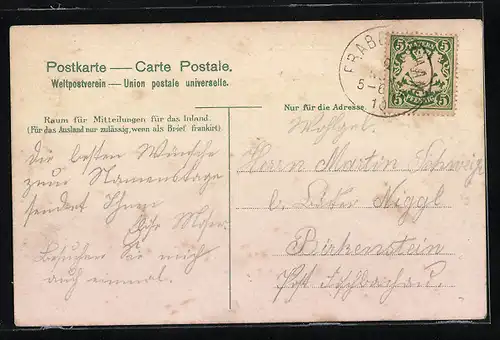 Postkarte — Carte Postale.
Weltpostverein — Union postale universelle.
Raum für Mitteilungen für das Inland.
(Für das Ausland nur zulässig, wenn als Brief frankirt)
Nur für die Adresse.
5 BAYERN 5
5 PFENNIG 5
Die besten Wünsche
zum Namenstage
sendet Ihnen
Moser.
Besuchen Sie mich
auch einmal.
Wohlgeb.
Herrn Martin
b. Niggl
Birkenstein
Post